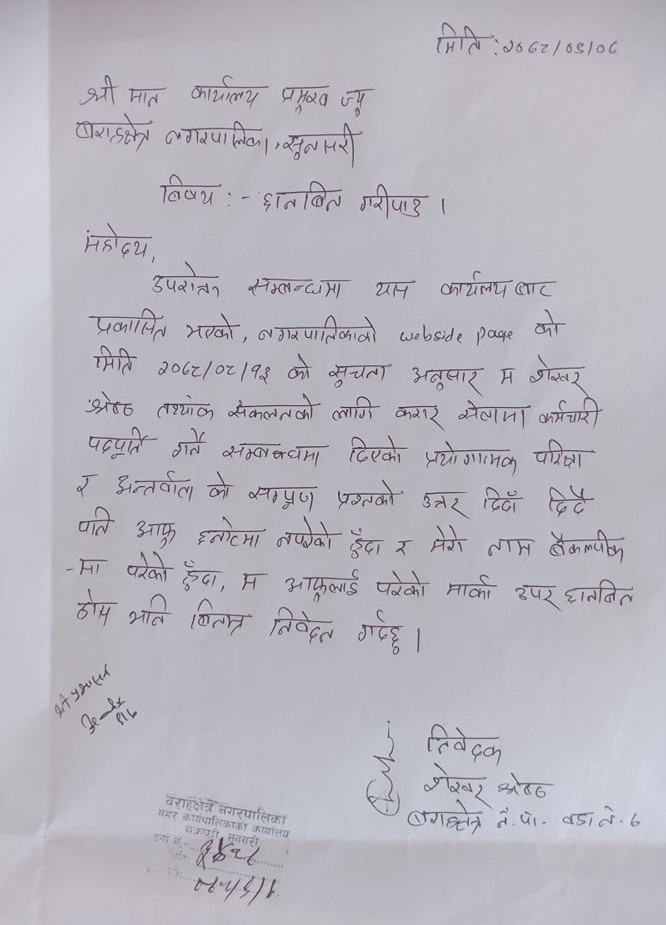 मिति: २०८१/०९/०८
श्री मान कार्यालय प्रमुख ज्यु
बराहक्षेत्र नगरपालिका, सुनसरी
विषय :- छानबिन गरीपाउ ।
महोदय,
उपरोक्त सम्बन्धमा यस कार्यलय बाट
प्रकासित भएको, नगरपालिकाको webside page को
मिति २०८१/०८/१३ को सुचना अनुसार म शेखर
श्रेष्ठ तथ्यांक संकलनको लागि करार सेवामा कर्मचारी
पदपूर्ति गर्ने सम्बन्धमा दिएको प्रयोगात्मक परिक्षा
र अन्तर्वार्ता को सम्पूण प्रश्नको उत्तर दिदाँ दिदै
पनि आफू छनोटमा नपरेको हुँदा र मेरो नाम बैकल्पीक
-मा परेको हुँदा, म आफूलाई परेको मार्का उपर छानबिन
होस् भनि बिनम्र निवेदन गर्दछु ।
निवेदक
शेखर श्रेष्ठ
बराहक्षेत्र न.पा. वडा नं. ६
वराहक्षेत्र नगरपालिका
नगर कार्यपालिकाको कार्यालय
चक्रघट्टी, सुनसरी